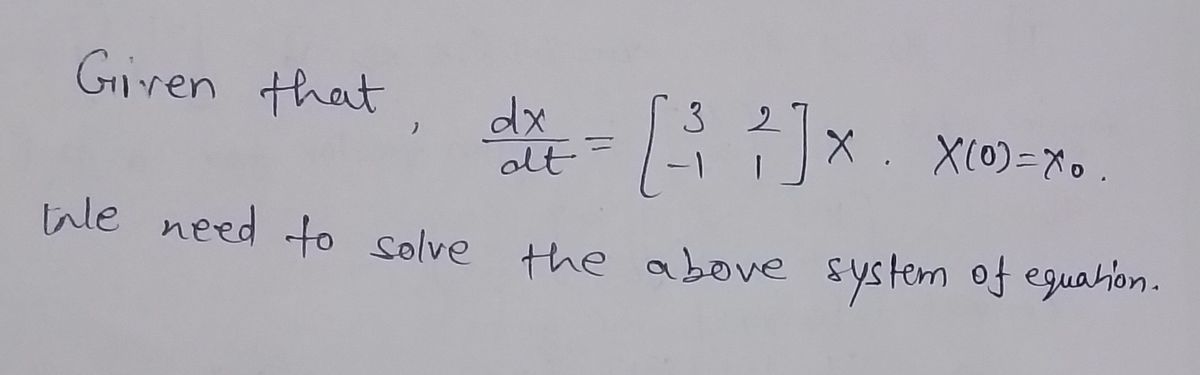 Given that, dx/dt = [3 2; -1 1] x. X(0)=x₀.
We need to solve the above system of equation.